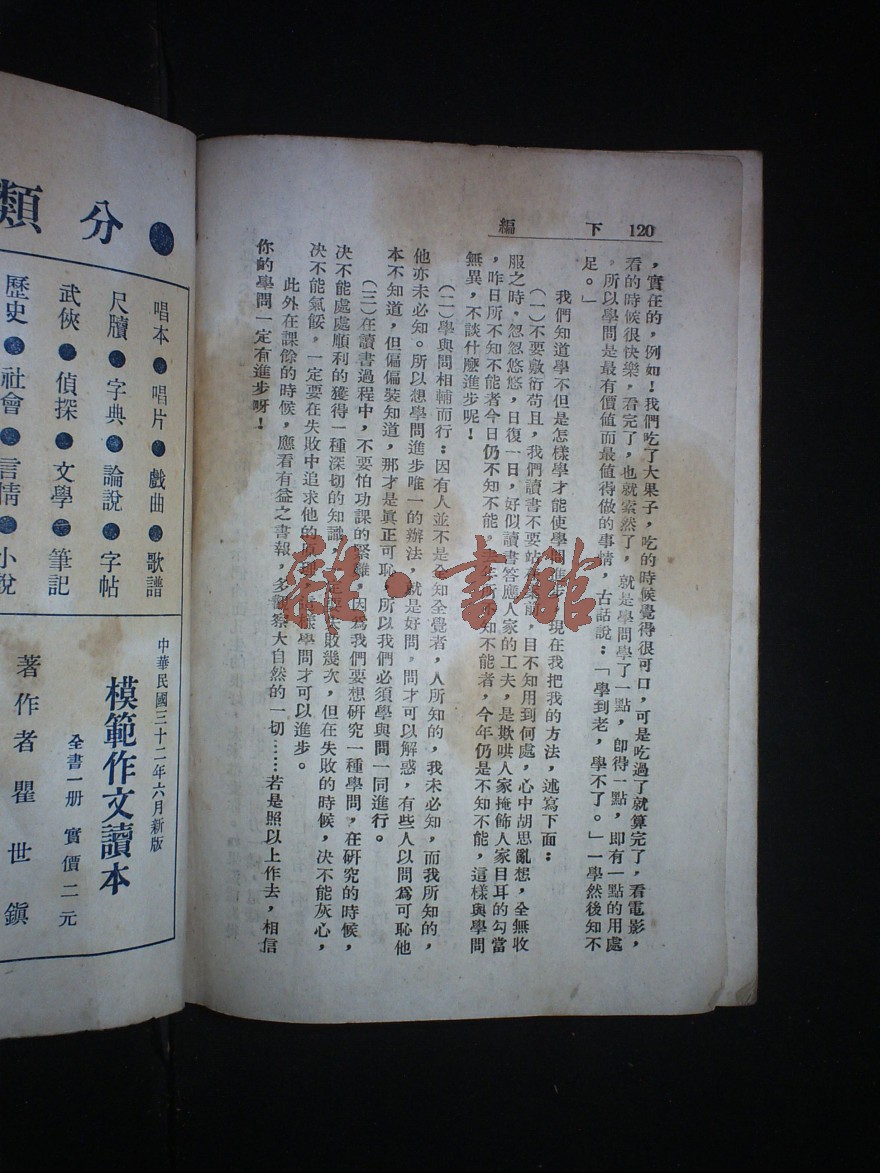 120 下編
，實在的，例如！我們吃了大果子，吃的時候覺得很可口，可是吃過了就算完了，看電影，
看的時候很快樂，看完了，也就索然了，就是學問學了一點，卽得一點，即有一點的用處
，所以學問是最有價值而最值得做的事情，古話說：「學到老，學不了。」一學然後知不
足。」
我們知道學不但是怎樣學才能使學問進步，現在我把我的方法，述寫下面：
（一）不要敷衍苟且，我們讀書不要站前，目不知用到何處，心中胡思亂想，全無收
服之時，忽忽悠悠，日復一日，好似讀書答應人家的工夫，是欺哄人家掩飾人家目耳的勾當
，昨日所不知不能者今日仍不知不能，年所不知不能者，今年仍是不知不能，這樣與學問
無異，不談什麼進步呢！
（二）學與問相輔而行：因有人並不是全知全覺者，人所知的，我未必知，而我所知的，
他亦未必知。所以想學問進步唯一的辦法，就是好問，問才可以解惑，有些人以問爲可恥他
本不知道，但偏偏裝知道，那才是眞正可恥，所以我們必須學與問一同進行。
（三）在讀書過程中，不要怕功課的緊難，因為我們要想研究一種學問，在研究的時候，
決不能處處順利的獲得一種深切的知識，定要失敗幾次，但在失敗的時候，決不能灰心，
決不能氣餒，一定要在失敗中追求他的，這樣學問才可以進步。
此外在課餘的時候，應看有益之書報，多觀察大自然的一切……若是照以上作去，相信
你的學問一定有進步呀！
雜·書館
分類
唱本●唱片●戲曲●歌譜
尺牘●字典●論說●字帖
武俠●偵探●文學●筆記
歷史●社會●言情●小說
中華民國三十二年六月新版
模範作文讀本
全書一册 實價二元
著作者瞿世鎭